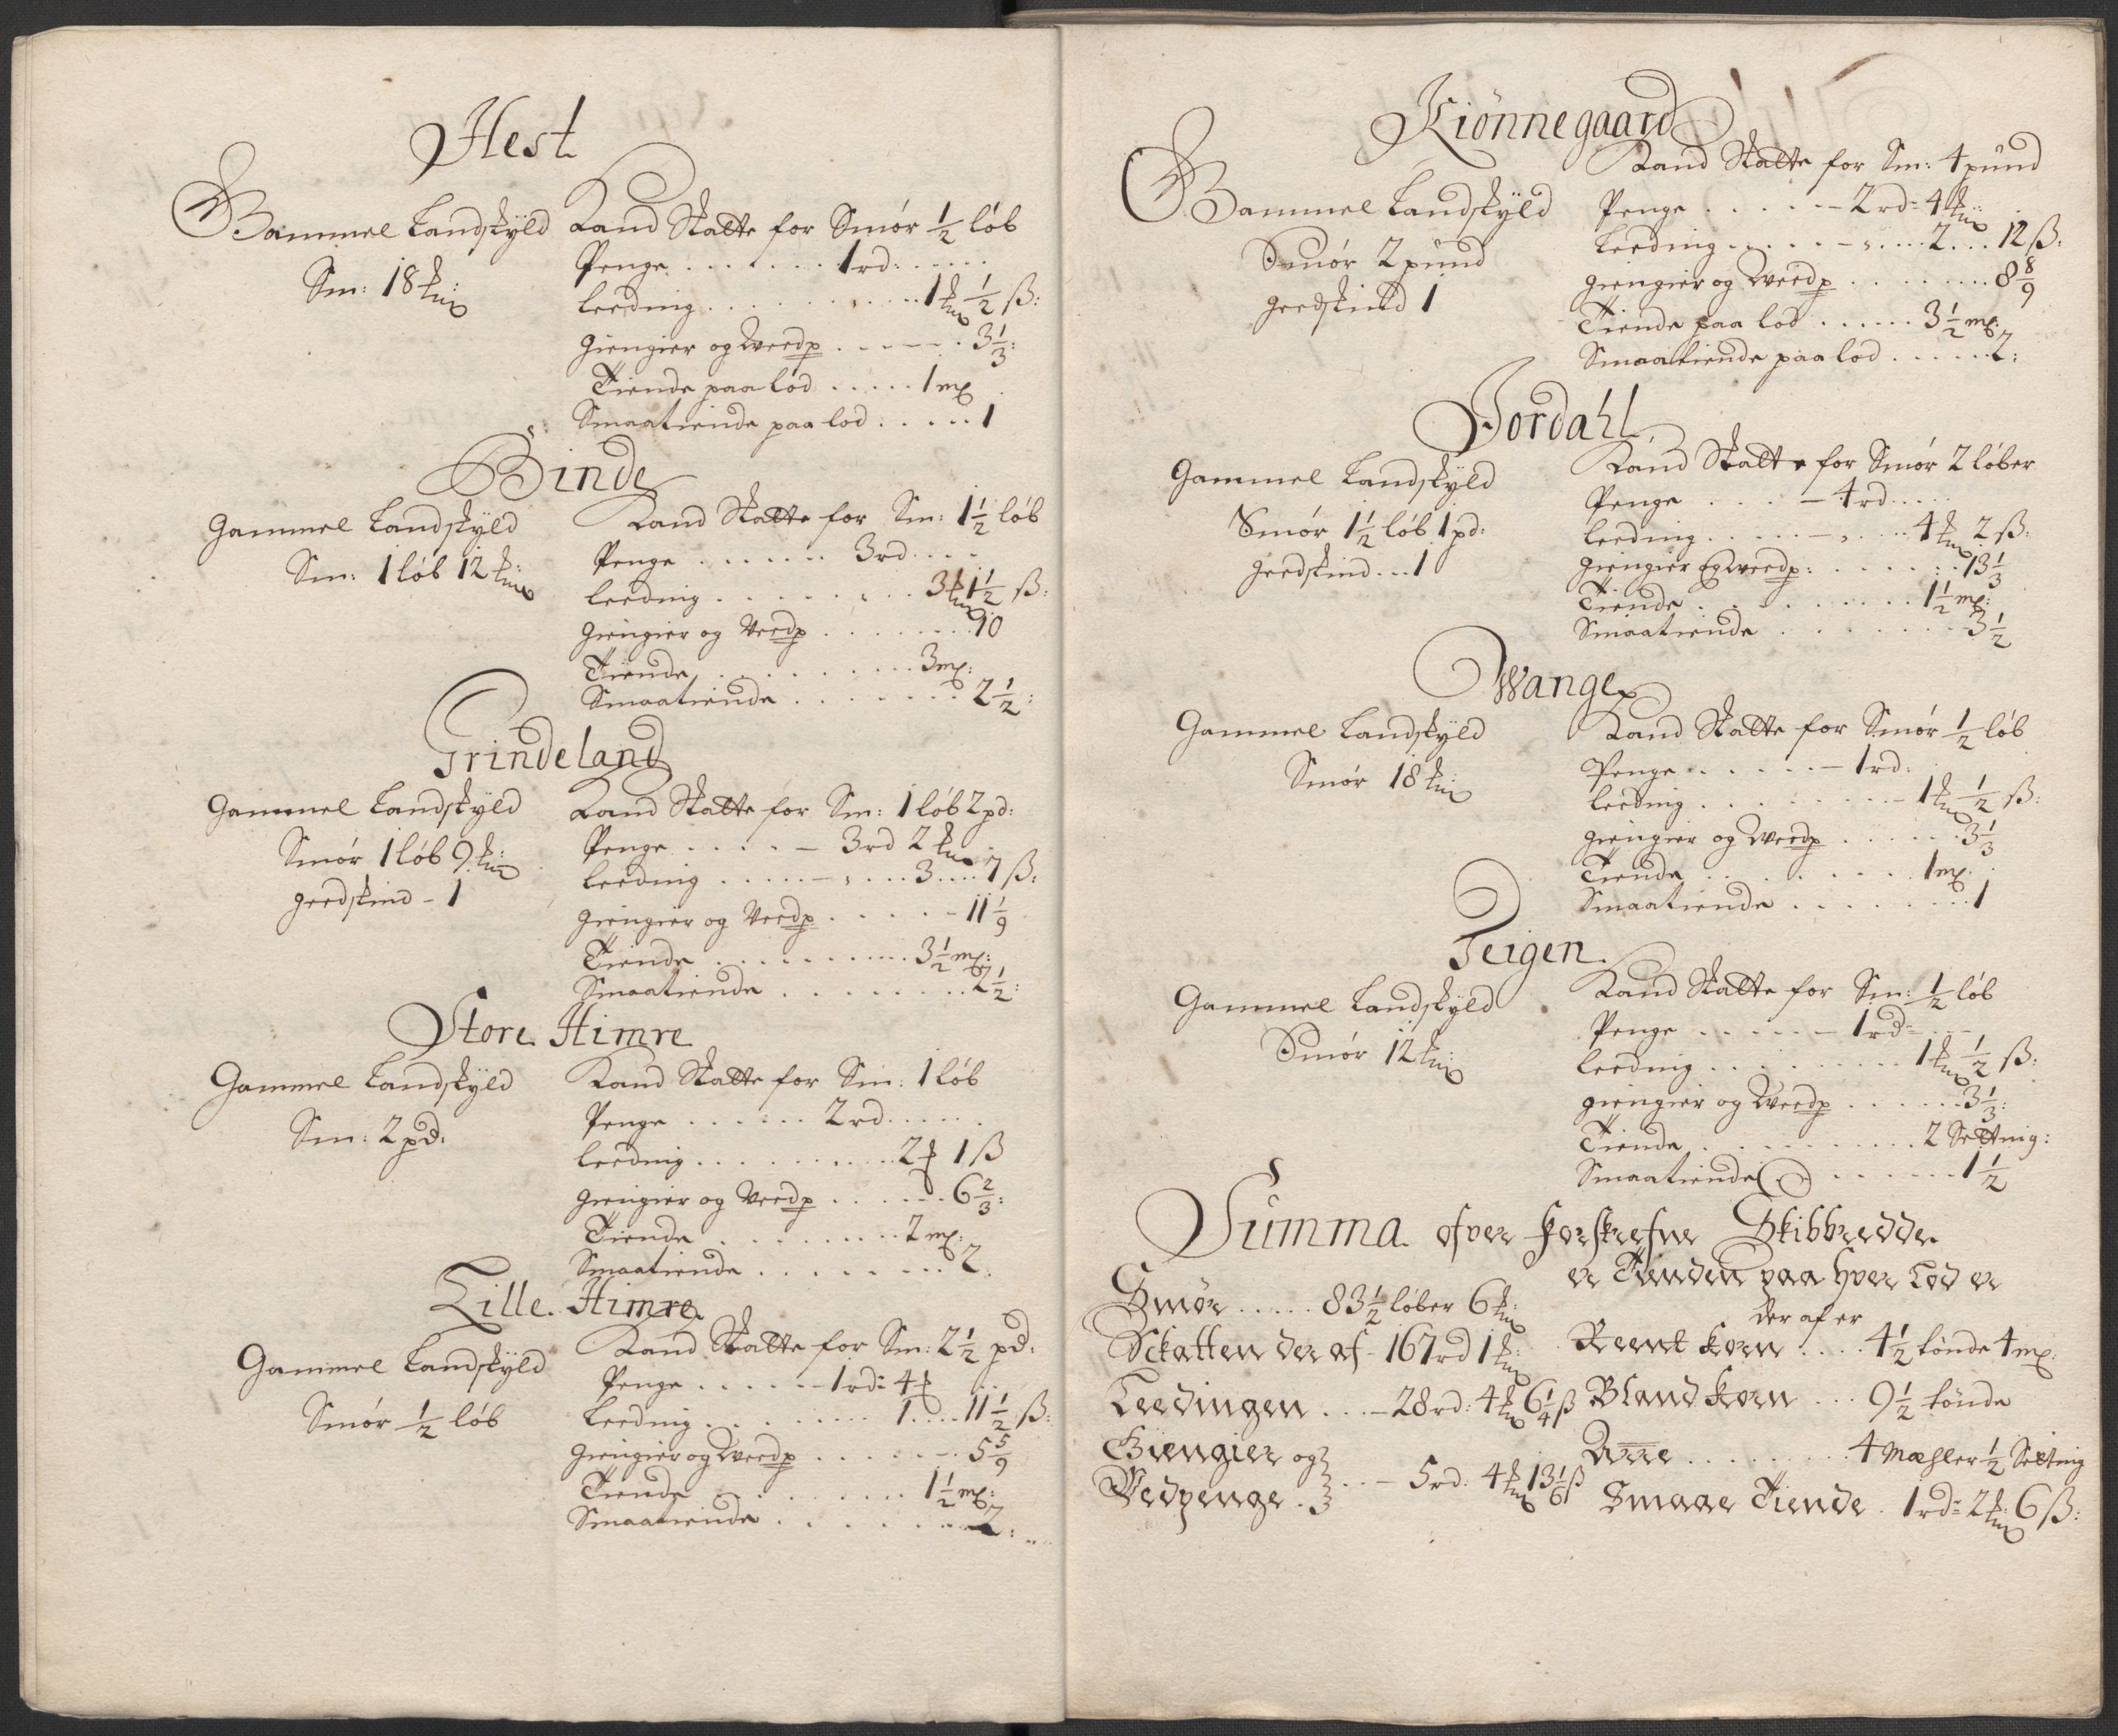 Hest
Gammel Landskÿld
Sm: 18 mk:
Kand Skatte for Smör 1/2 löb
Penge . . . . . . . 1 rd: . . . . .
Leeding . . . . . . . . . . . 1 mk 1/2 ß:
Giengier og Weedp . . . . . . 3 1/3:
Tiende paa lod . . . . . 1 mp
Smaatiende paa lod : . . . . 1
Binde
Gammel Landskÿld
Sm: 1 löb 12 mk:
Kand Skatte for Sm: 1 1/2 löb
Penge . . . . . . . 3 rd . . . .
Leeding . . . . . . . . . 3 mk 1 1/2 ß:
Giengier og Veedp . . . . . . . 10
Tiende . . . . . . . . . . 3 mp:
Smaatiende . . . . . . . . 2 1/2:
Grindeland
Gammel Landskÿld
Smör 1 löb 9 mk:
Geedskind - 1
Kand Skatte for Sm: 1 löb 2 pd:
Penge . . . . - 3 rd 2 mk
Leeding . . . . . - . . . . 3 . . . . 7 ß:
Giengier og Veedp . . . . . - 11 1/9
Tiende . . . . . . . . . . 3 1/2 mp:
Smaatiende . . . . . . . . . 2 1/2:
Store Himre
Gammel Landskÿld
Sm: 2 pd:
Kand Skatte for Sm: 1 löb
Penge . . . . . . 2 rd . . . . .
Leeding . . . . . . . . . . 2 mk 1 ß
Giengier og Veedp . . . . . . 6 2/3:
Tiende . . . . . . . . . 2 mp:
Smaatiende . . . . . . . . 2.
Lille Himre
Gammel Landskÿld
Smör 1/2 löb
Kand Skatte for Sm: 2 1/2 pd:
Penge . . . . . - 1 rd: 4 mk
Leeding . . . . . . . . . . 1 . . . . 11 1/2 ß:
Giengier og Weedp . . . . . . . 5 5/9
Tiende . . . . . . . . . . 1 1/2 mp:
Smaatiende . . . . . . . . . 2:
Kiönnegaard
Gammel Landskÿld
Smör 2 pünd
Geedskind 1
Kand Skatte for Sm: 4 pünd
Penge . . . . . - 2 rd: 4 mk:
Leeding . . . . . - . . . . 2 . . . 12 ß:
Giengier og Weedp . . . . . . . . 8 8/9
Tiende paa lod . . . . . . 3 1/2 mp:
Smaatiende paa lod . . . . . . 2:
Jordahl
Gammel Landskÿld
Smör 1 1/2 löb 1 pd:
Geedskind . . . 1
Kand Skatte for Smör 2 löber
Penge . . . . - 4 rd . . . .
Leeding . . . . . - . . . . 4 mk 2 ß:
Giengier og weedp: . . . . . . . 13 1/3
Tiende . . . . . . . . . . 1 1/2 mp:
Smaatiende . . . . . . . . 3 1/2
Wange
Gammel Landskÿld
Smör 18 mk
Kand Skatte for Smör 1/2 löb
Penge . . . . . . - 1 rd:
Leeding . . . . . . . . . - 1 mk 1/2 ß:
Giengier og Weedp . . . . . . 3 1/3
Tiende . . . . . . . . . . 1 mp.
Smaatiende . . . . . . . . . 1
Teigen
Gammel Landskÿld
Smör 12 mk:
Kand Skatte for Sm: 1/2 löb
Penge . . . . . - 1 rd: . . .
Leeding . . . . . . . . . . 1 mk 1/2 ß:
Giengier og Weedp . . . . . . 3 1/3:
Tiende . . . . . . . . . . 2 Settnig:
Smaatiende . . . . . . . 1 1/2
Summa ofver forskrefne Skibbredde
Smör . . . . . 83 1/2 löber 6 mk:
Sckatten der af - 167 rd 1 mk:
Leedingen . . . - 28 rd: 4 mk 6 1/4 ß
Giengier og
Vedpenge . . . - 5 rd: 4 mk 13 1/6 ß
er Tienden paa hver Lod er
der af er
Reent korn . . . . 4 1/2 tönde 4 mp:
Bland korn . . . 9 1/2 tönde
. . . . . . . . . 4 Mæhler 1/2 Setting
Smaae Tiende . 1 rd: 2 mk: 6 ß: